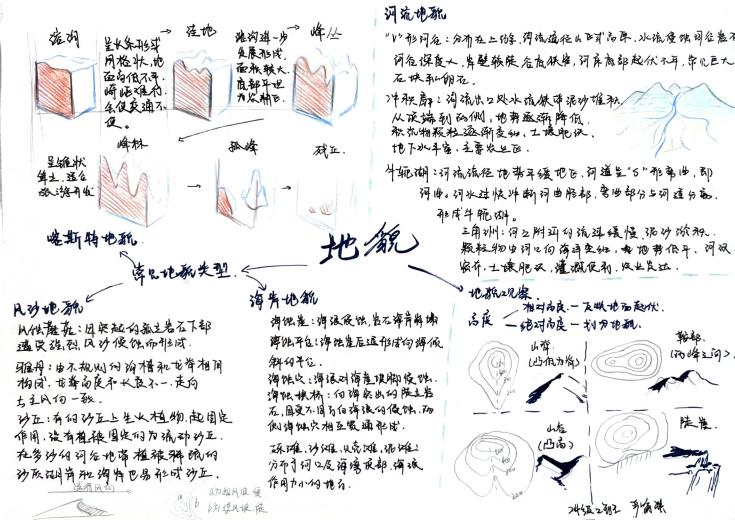 溶沟
呈长条形或
网格状,地
面高低不平,
崎岖难行,
会使交通不
便。
洼地
溶沟进一步
发展形成,
面积较大,
底部平坦
为农耕区
峰丛
峰林
呈锥状
耸立,适合
旅游开发
孤峰
残丘
喀斯特地貌
常见地貌类型
地貌
河流地貌
"V"形河谷:分布在上游,河流流经山区或高原,水流侵蚀河谷岩石
河谷深度大,岸壁较陡,谷底狭窄,河床底部起伏不平,常见巨大
石块和卵石。
冲积扇:河流出口处水流携带泥沙堆积,
从顶端到两侧,地势逐渐降低,
积沉物颗粒逐渐变细,土壤肥沃,
地下水丰富,主要农业区。
牛轭湖:河流流经地势平缓地区,河道呈"S"形弯曲,即
河曲。河水过快冲断河曲颈部,弯曲部分与河道分离,
形成牛轭湖。
三角洲:河口附近的流速缓慢,泥沙淤积,
颗粒物由河口向海洋变细,地势低平,河汊
密布,土壤肥沃,灌溉便利,农业发达。
风沙地貌
风蚀蘑菇:因突起的孤立岩石下部
遭受强烈风沙侵蚀而形成。
雅丹:由不规则的沟槽和龙脊相间
构成,龙脊高度不一长度不一,走向
与主风向一致。
沙丘:有的沙丘上生长植物,起固定
作用,没有植被固定的为流动沙丘。
在多沙的河谷地带植被稀疏的
沙质湖岸和海岸也易形成沙丘。
盛行风向
a为迎风坡 缓
b为背风坡 陡
海岸地貌
海蚀崖:海浪侵蚀,岩石海岸坍塌
海蚀平台:海蚀崖后退形成向海倾
斜的平台。
海蚀穴:海浪对海崖坡脚侵蚀。
海蚀拱桥:向海突出的陡立岩
石,因受不同方向海浪的侵蚀,两
侧海蚀穴相互贯通形成。
砾滩、沙滩、贝壳滩、泥滩:
分布于河口及海湾底部,海浪
作用力小的地方。
地貌观察
高度
相对高度—反映地面起伏
绝对高度—划分地貌
山脊
(凸低为脊)
鞍部
(两峰之间)
山谷
(凸高)
陡崖